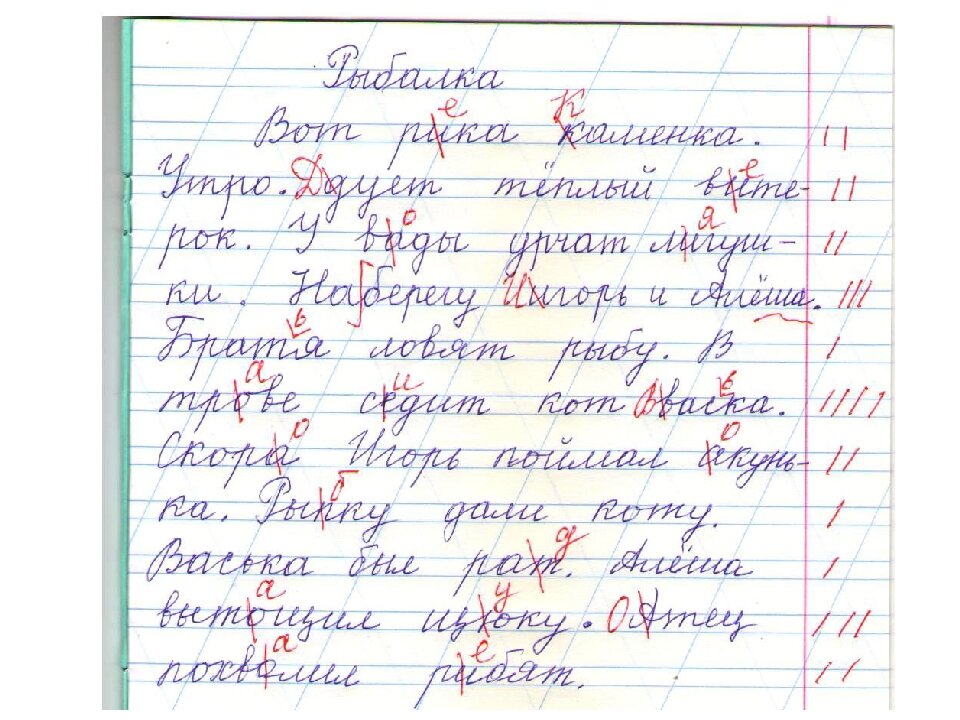 Рыбалка
Вот рика каменка.
Утро. дует тёплый вите-
рок. У вады урчат лигуш-
ки. Наберегу игорь и Алёша.
Братя ловят рыбу. В
трове седит кот васка.
Скора Игорь поймал акунь-
ка. Рыпку дали коту.
Васька был рат. Алёша
вытощил щюку. Атец
похволил рибят.